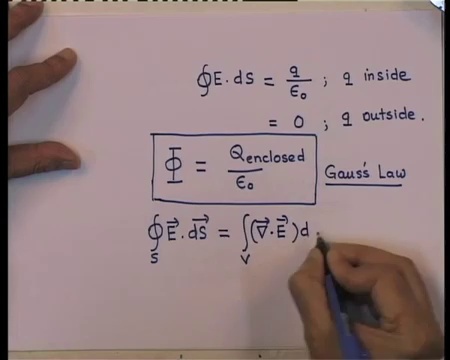 ∮E.ds = q/ε₀ ; q inside
= 0 ; q outside.
Φ = Qenclosed/ε₀ Gauss's Law
∮_S E⃗.dS⃗ = ∫_V (∇⃗.E⃗)d